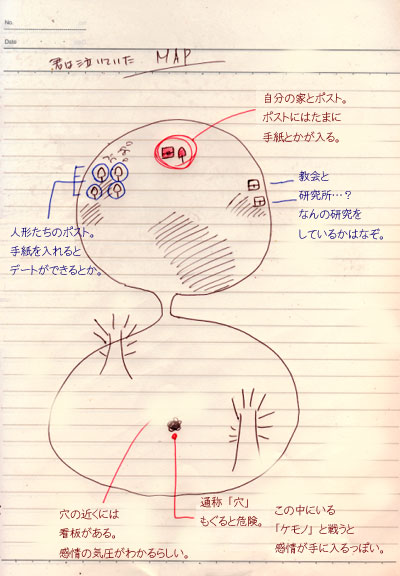 No.
Date
君は泣いていた MAP
自分の家とポスト。
ポストにはたまに
手紙とかが入る。
教会と
研究所…？
なんの研究を
しているかはなぞ。
人形たちのポスト。
手紙を入れると
デートができるとか。
穴の近くには
看板がある。
感情の気圧がわかるらしい。
通称「穴」
もぐると危険。
この中にいる
「ケモノ」と戦うと
感情が手に入るっぽい。